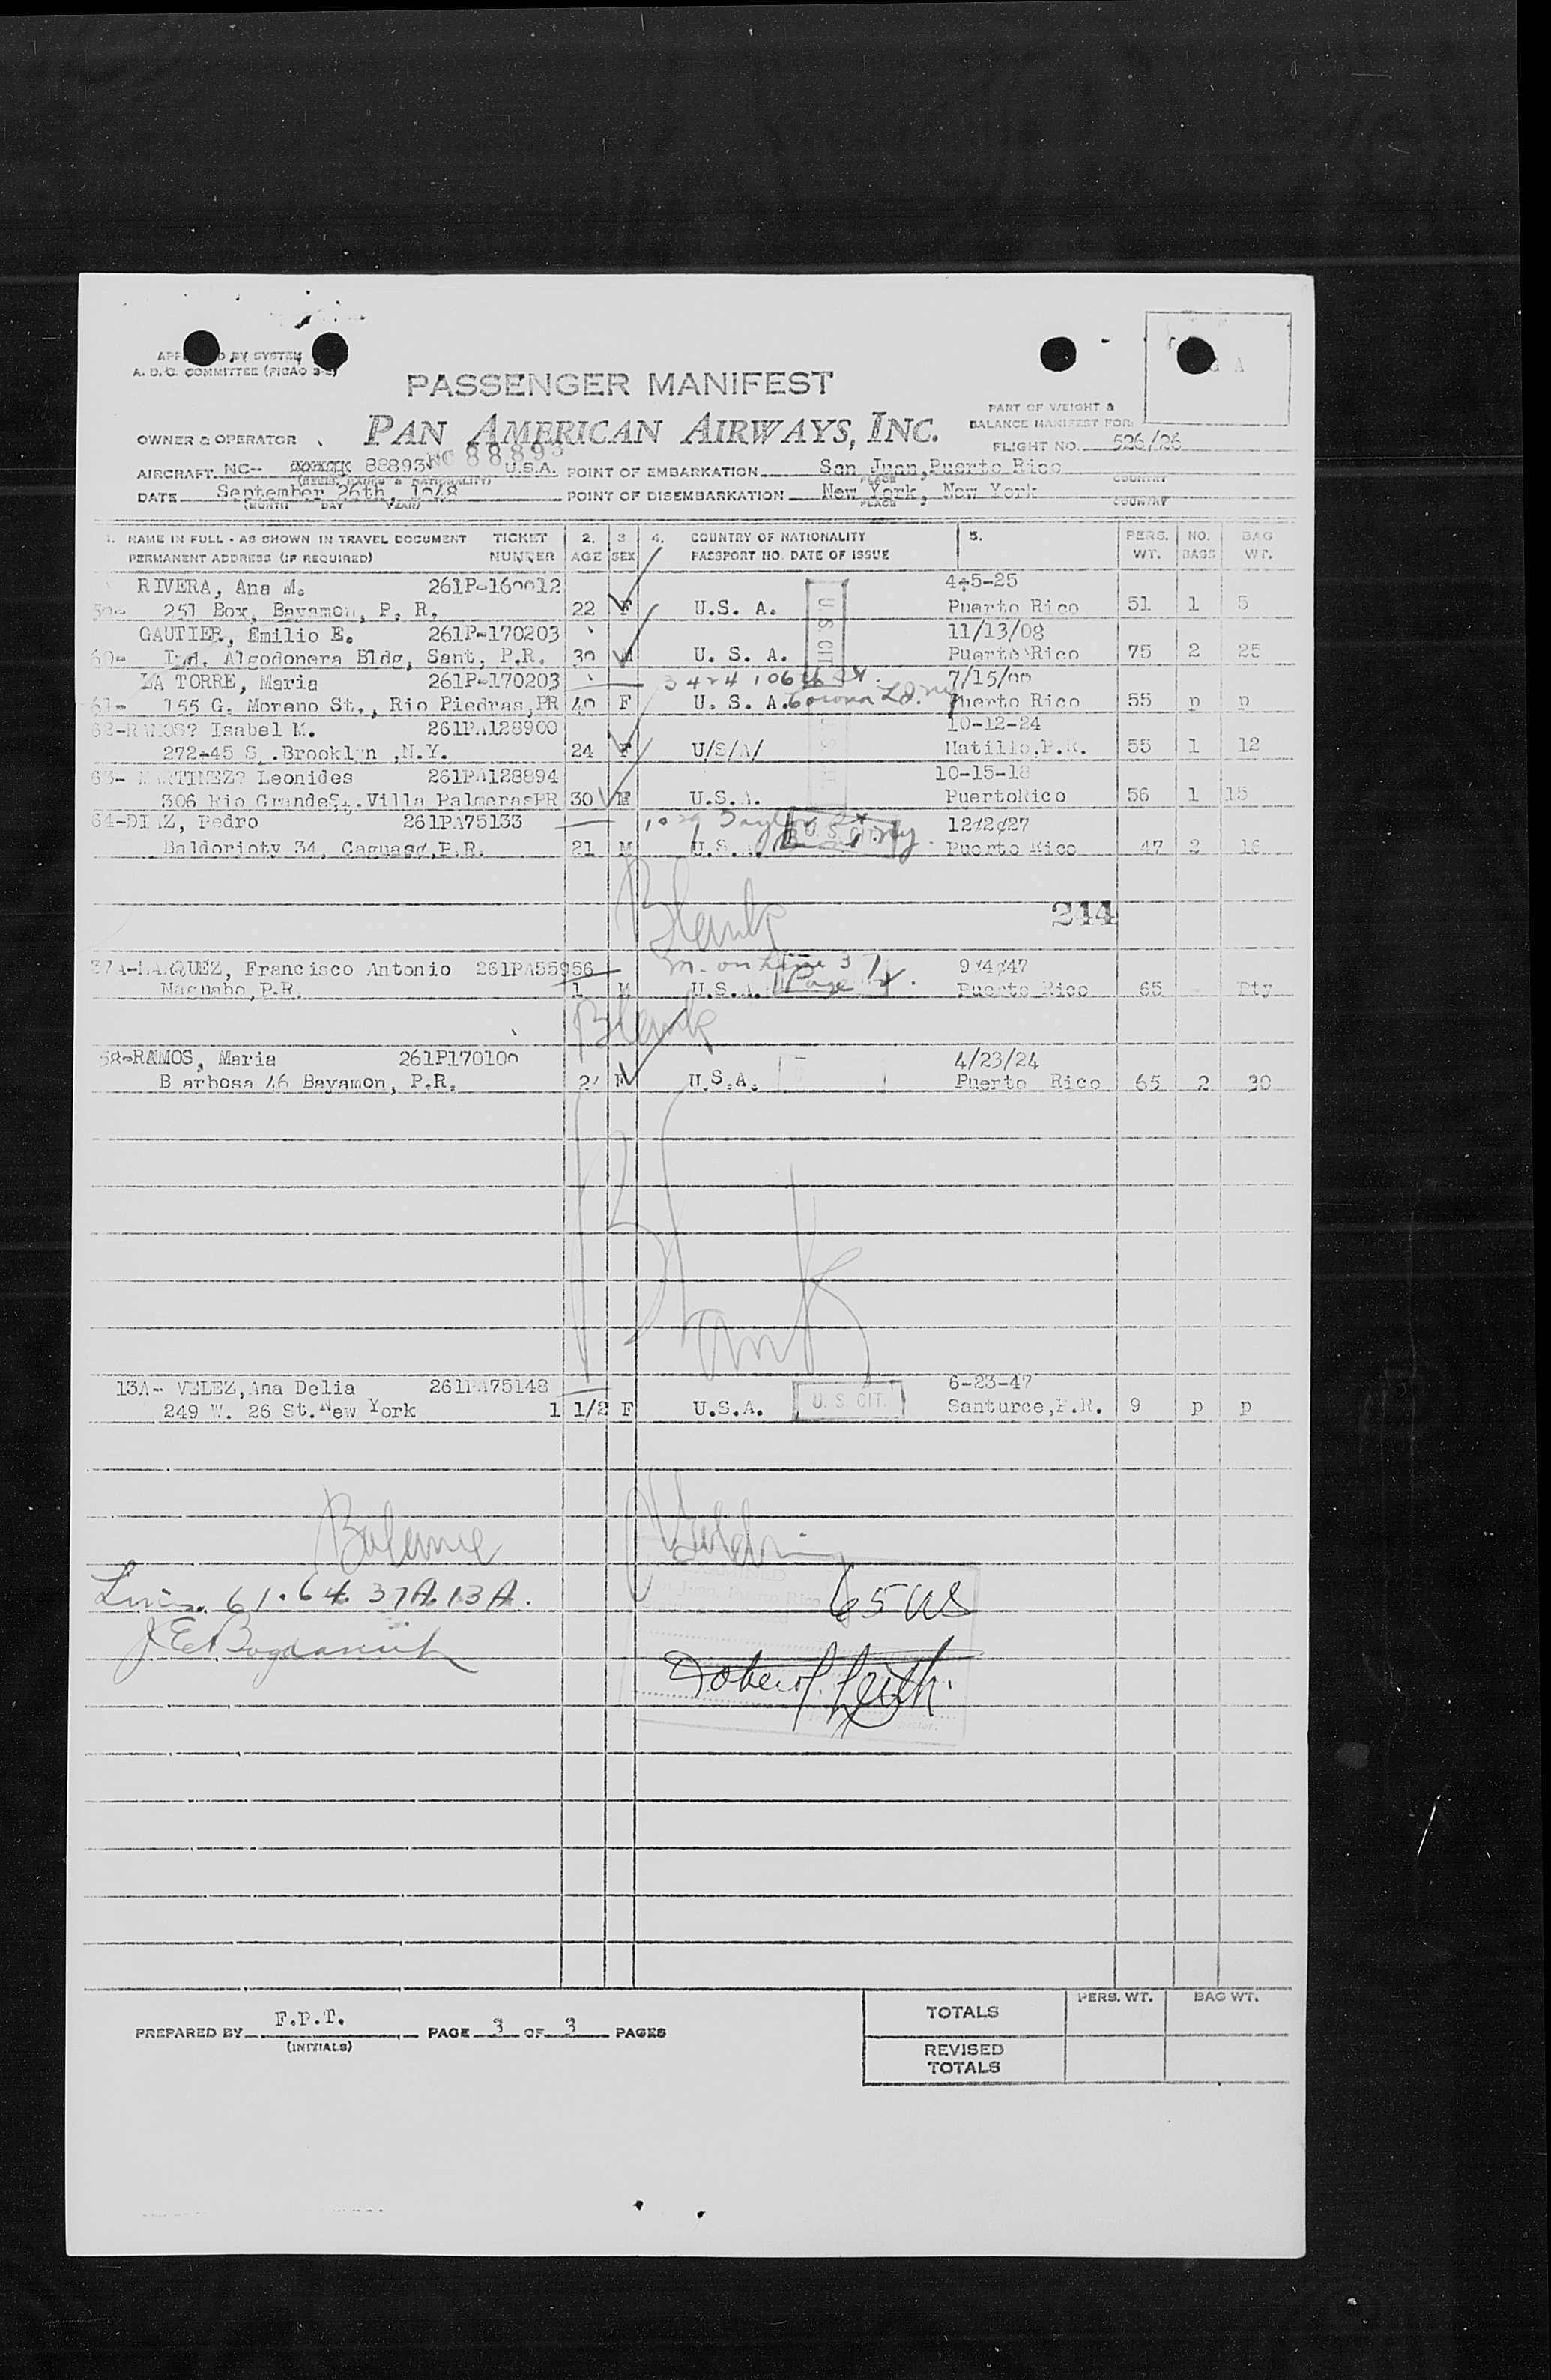 APP D BY SYSTEM
A. D. C. COMMITTEE (PICAO
PASSENGER MANIFEST
PART OF WEIGHT &
BALANCE MANIFEST FOR:
OWNER & OPERATOR PAN AMERICAN AIRWAYS, INC.
FLIGHT NO. 526/26
AIRCRAFT NC-- 88893 NC 88893 U.S.A. POINT OF EMBARKATION San Juan, Puerto Rico
(REGIS. MARKS & NATIONALITY) PLACE COUNTRY
DATE September 26th, 1948 POINT OF DISEMBARKATION New York, New York
(MONTH DAY YEAR) PLACE COUNTRY
1. NAME IN FULL - AS SHOWN IN TRAVEL DOCUMENT TICKET 2. 3 4. COUNTRY OF NATIONALITY 5. PERS. NO. BAG
PERMANENT ADDRESS (IF REQUIRED) NUMBER AGE SEX PASSPORT NO. DATE OF ISSUE WT. BAGS WT.
RIVERA, Ana M. 261P-160012 4-5-25
251 Box, Bayamon, P. R. 22 F U.S. A. Puerto Rico 51 1 5
U.S. CIT.
GAUTIER, Emilio E. 261P-170203 11/13/08
60- Ind. Algodonera Bldg, Sant, P.R. 39 M U. S. A. Puerto Rico 75 2 25
LA TORRE, Maria 261P-170203 3424 106th St. 7/15/00
61- 155 G. Moreno St., Rio Piedras,PR 49 F U. S. A. Corona Puerto Rico 55 p p
62-RAMOS? Isabel M. 261PA128900 10-12-24
272-45 S .Brooklyn ,N.Y. 24 F U/S/A/ Hatillo,P.R. 55 1 12
63- MARTINEZ? Leonides 261PA128894 10-15-18
306 Rio GrandeSt.Villa PalmerasPR 30 M U.S.A. PuertoRico 56 1 15
64-DIAZ, Pedro 261PA75133 12/2/27
Baldorioty 34, Caguas,P.R. 21 M U.S.A. U. S. CIT. Puerto Rico 47 2 16
Blank
244
37A-MARQUEZ, Francisco Antonio 261PA55956 M. on Line 37 9/4/47
Naguabo,P.R. 1 M U.S.A. Page Puerto Rico 65 - Pty
Blank
58-RAMOS, Maria 261P170100 4/23/24
Barbosa 46 Bayamon, P.R. 24 F U.S.A. Puerto Rico 65 2 30
Blank
13A- VELEZ,Ana Delia 261PA75148 6-23-47
249 W. 26 St.New York 1 1/2 F U.S.A. U. S. CIT. Santurce,P.R. 9 p p
Balance
Lines. 61. 64. 37A. 13A. 65 US
PREPARED BY F.P.T. PAGE 3 OF 3 PAGES
(INITIALS)
PERS. WT. BAG WT.
TOTALS
REVISED
TOTALS